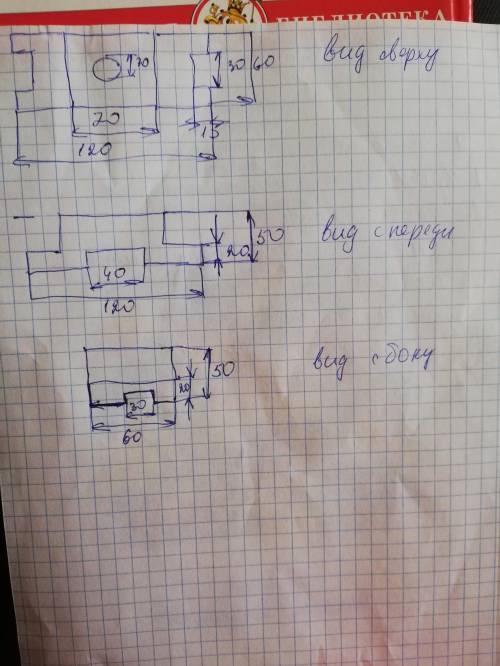 БИБЛИОТЕКА
вид сверху
20
30
60
70
15
120
вид спереди
50
20
40
120
вид с боку
50
20
30
60